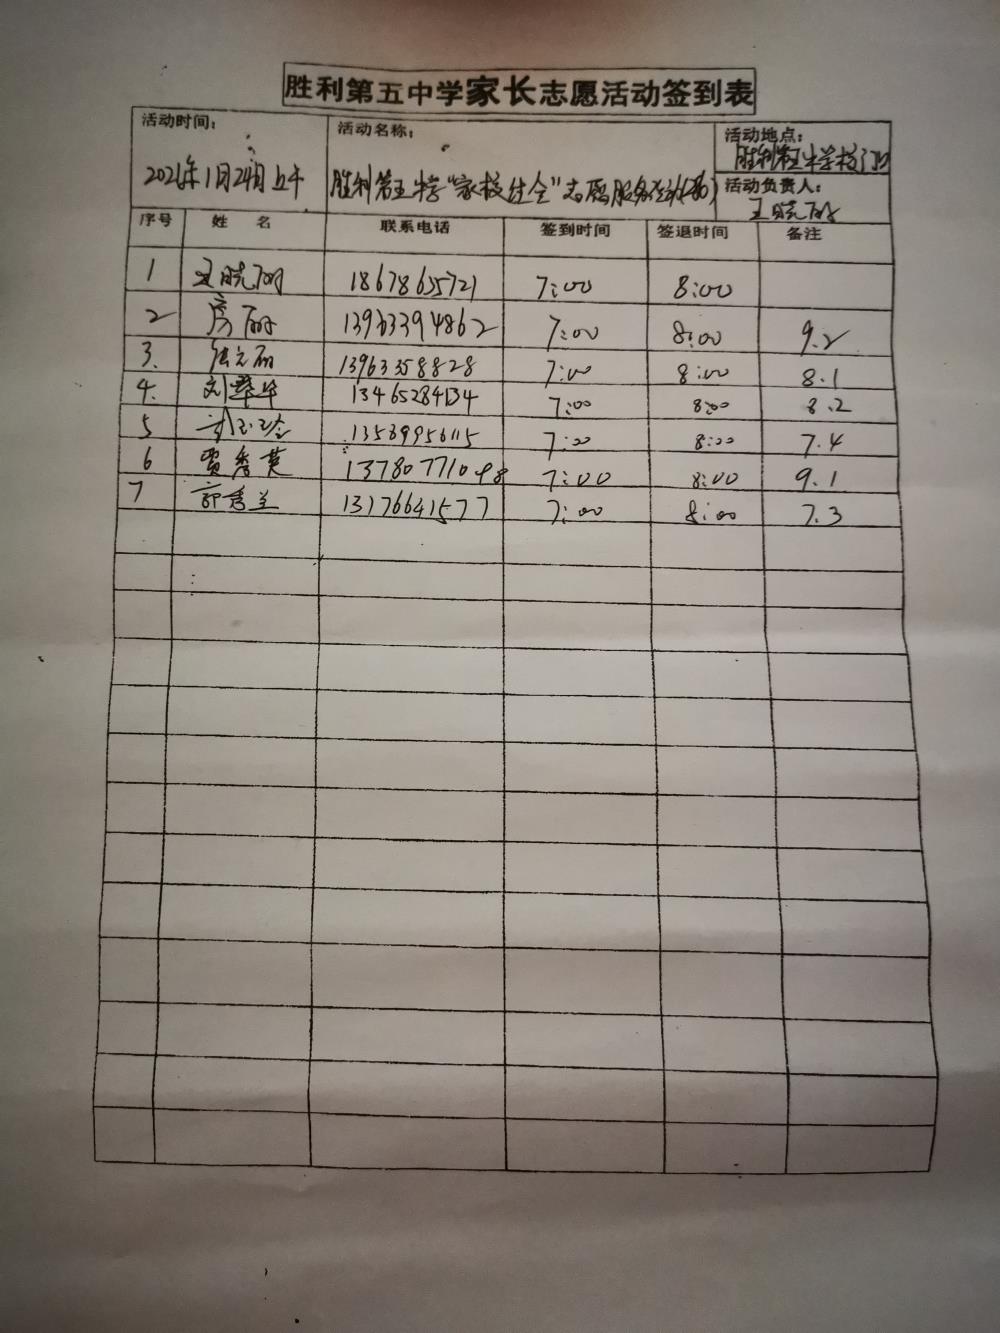 胜利第五中学家长志愿活动签到表
活动时间： 活动名称： 活动地点：
胜利第五中学校门口
1月24日上午 胜利第五中学"家校社会"志愿服务活动
活动负责人：
王晓丽
序号 姓 名 联系电话 签到时间 签退时间 备注
1 王晓丽 18678635721 7:00 8:00
2 房丽 13963394862 7:00 8:00 9.2
3. 13963358828 7:00 8:00 8.1
4. 刘翠华 13465284134 7:00 8:00 8.2
5 13589956115 7:00 8:00 7.4
6 贾秀英 13780771098 7:00 8:00 9.1
7 郭秀兰 13176641577 7:00 8:00 7.3